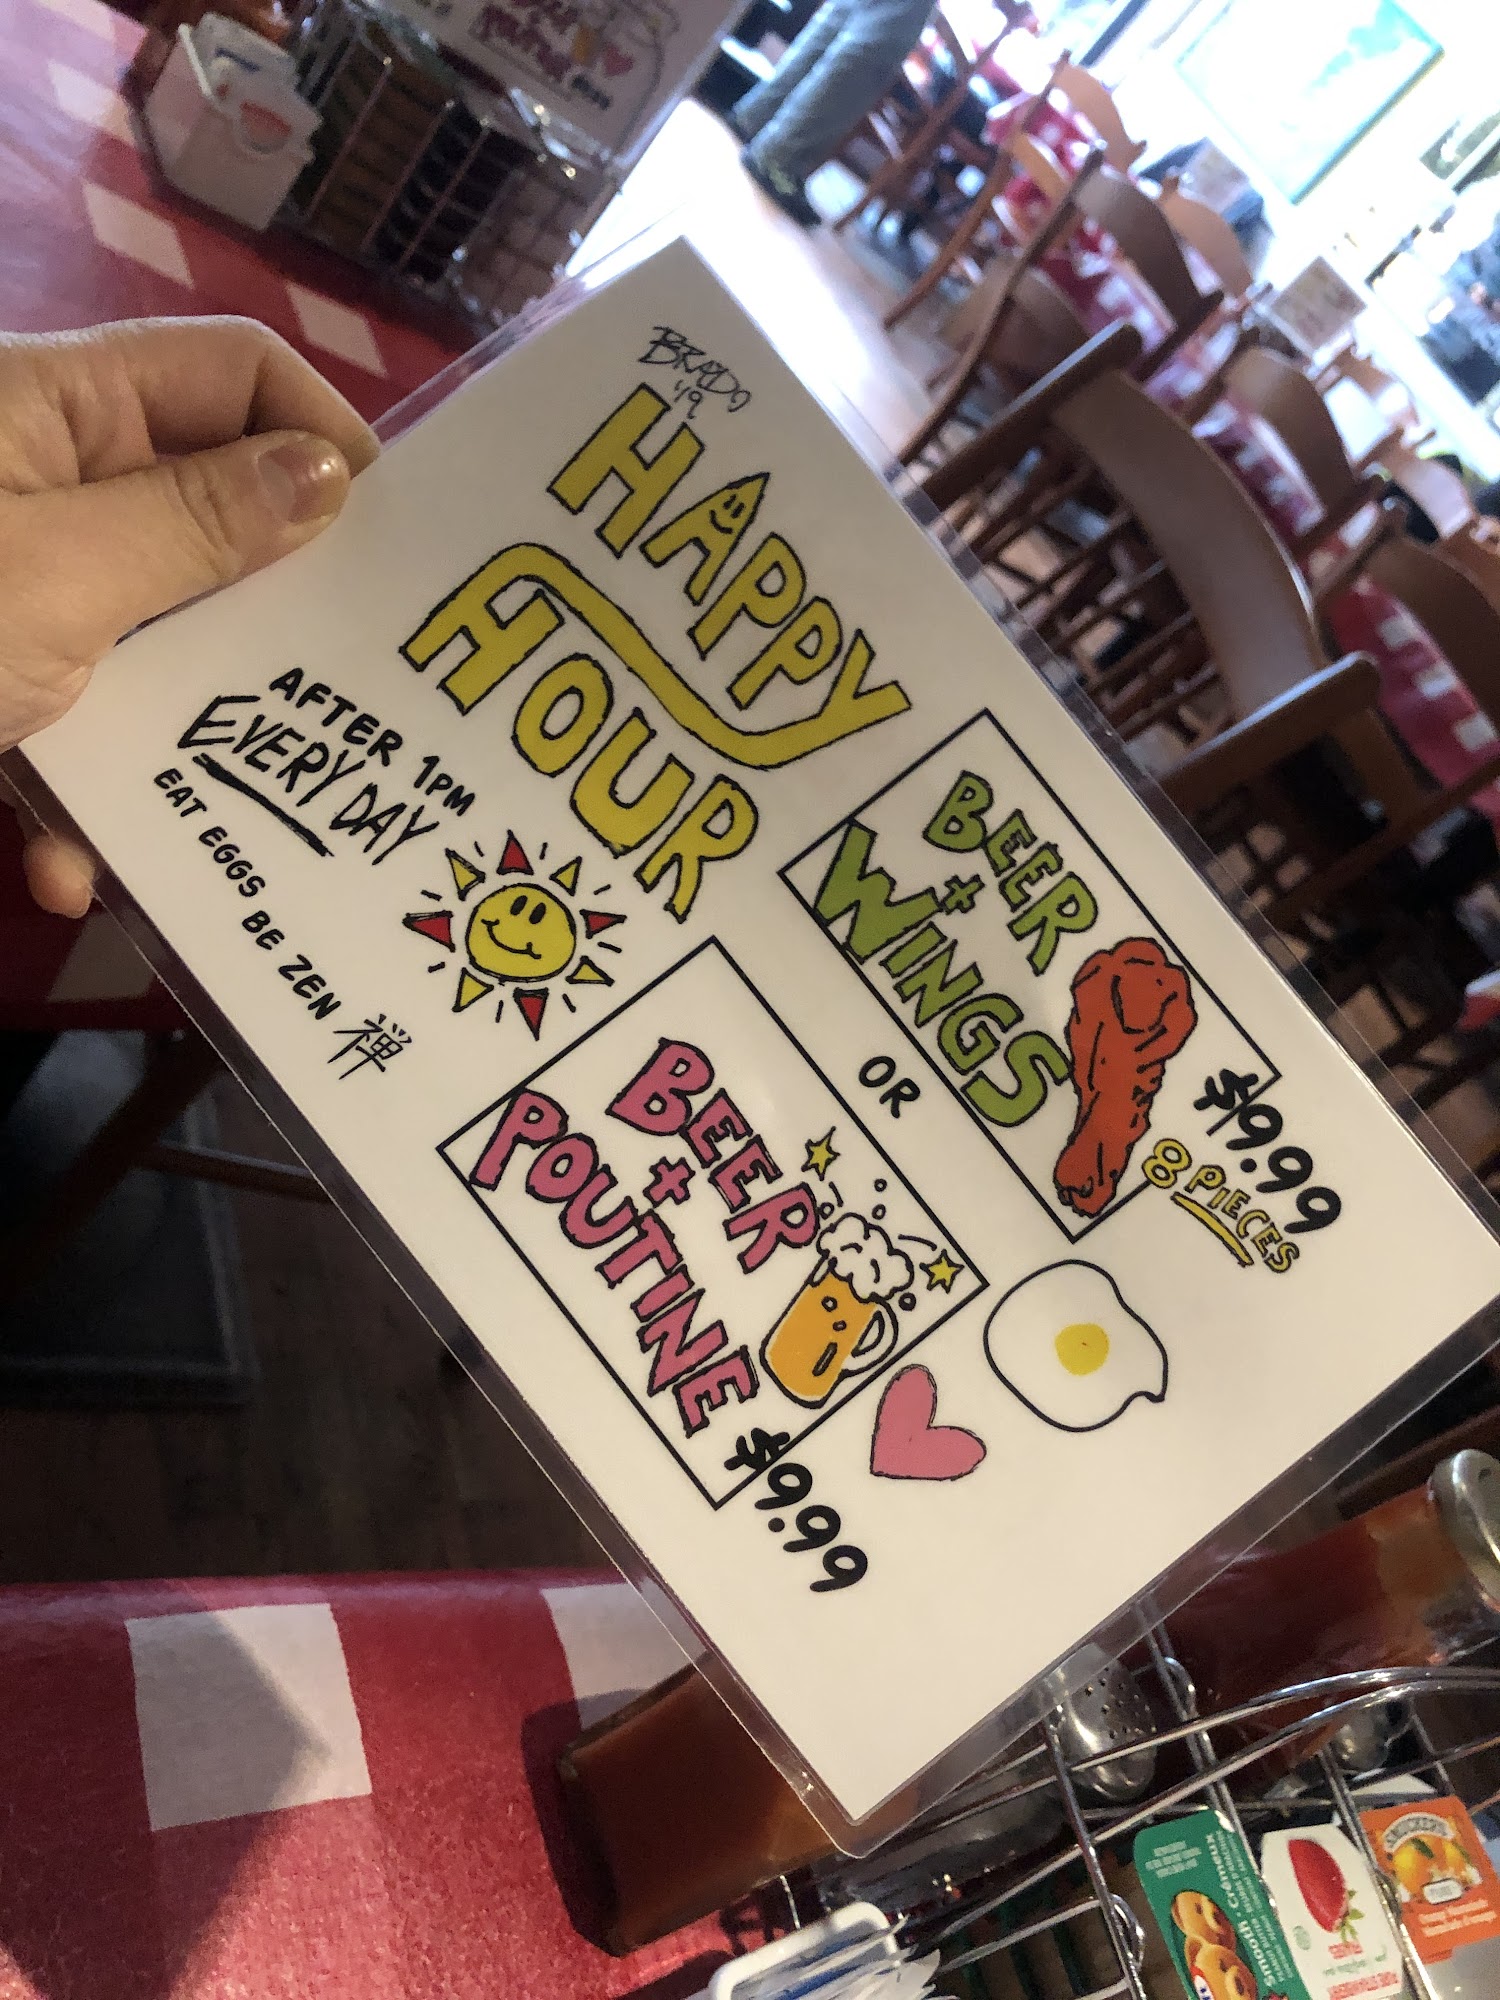 BRADO
'19
HAPPY
HOUR
AFTER 1PM
EVERY DAY
EAT EGGS BE ZEN 禅
BEER
+
WINGS
$9.99
8 PIECES
OR
BEER
+
POUTINE
$9.99
Crémeux
Smooth
SMUCKER'S